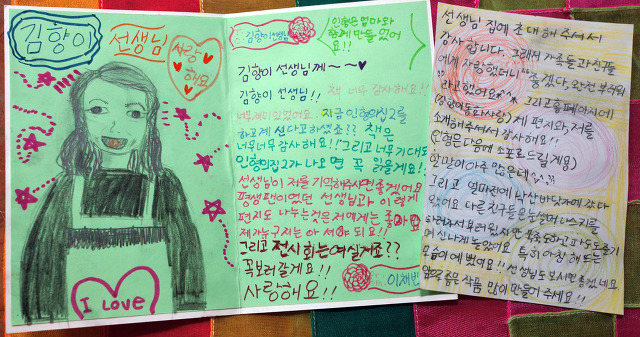 김향이
선생님
사랑
해요
I Love
김향이 선생님
인형은 엄마와
함께 만들었어
요!!
김향이 선생님께~~♥
김향이 선생님!! 책 너무 감사해요!!
너무재미있었어요. 지금 인형의집2를
하고계신다고하셨죠?? 책은
너무너무감사해요!! 그리고너무기대돼
인형의집2가 나오면 꼭 읽을게요!!
선생님이 저를 기억해주시면좋겠어요
평생팬이였던 선생님과 이렇게
편지도 나누는것은 저에게는 좋아요
제가누구지는 아셔야 되요!!
그리고 전시회는여실게죠??
꼭보러갈게요!!
사랑해요!!
이채빈
선생님 집에 초대해 주셔서
감사합니다. 그래서 가족들과친구들
에게 자랑했더니 "좋겠다, 완전 부러워"
라고했어요^^ 그리고홈페이지에
제 편지와, 저를
소개해주셔서감사해요!!
(인형은다음에 소포로드릴게용)
할말이아주 많은데
그리고 얼마전에 낙산바닷가에 갔다
왔어요 다른친구들은
신나게놀았어요 특히 아침 해뜨는
모습이 예뻤어요!! 선생님도보시면좋겠네요
작품 많이만들어 주세요!!